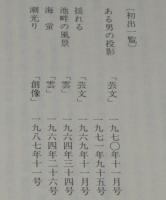 〔初出一覧〕
ある男の投影 「芸文」 一九七〇年十一月号
「芸文」 一九七一年九十五号
揺れる 「芸文」 一九六九年十一月号
池畔の風景 「雲」 一九六四年三十四号
海蛍 「雲」 一九六四年二十六号
潮光り 「創像」 一九八七年十一号